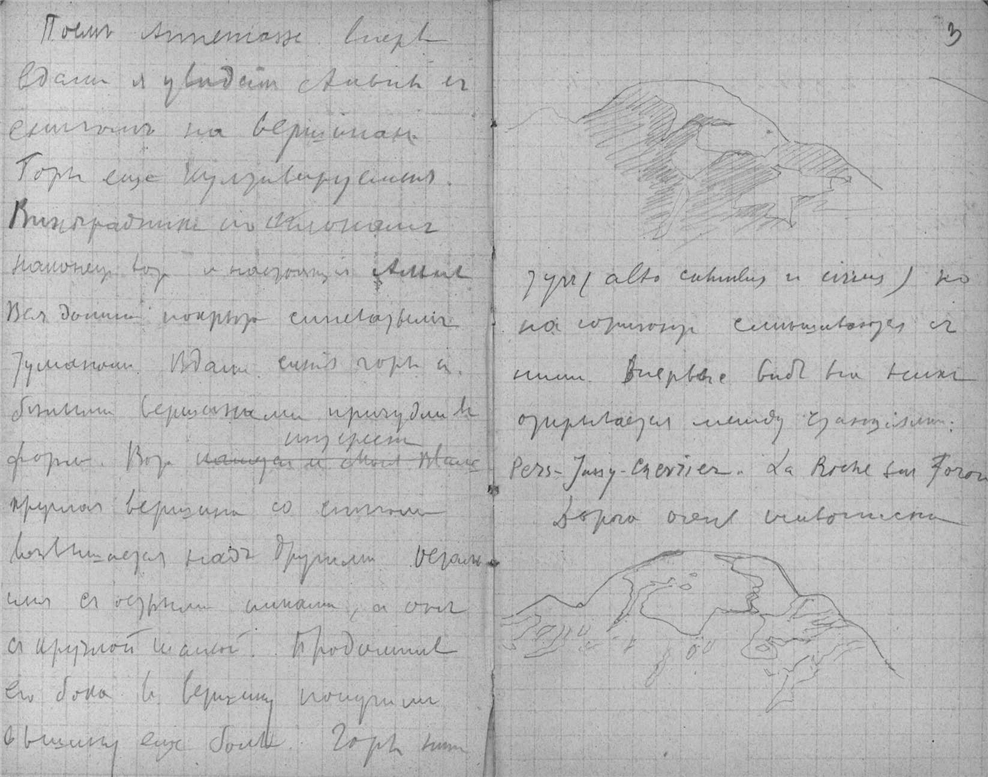 Послѣ Annemasse впервые
вдали я увидѣлъ Альпы съ
снѣгомъ на вершинахъ
Горы еще
Виноградники по склонамъ
наконецъ вотъ и настоящія Альпы
Вся долина покрыта синеватымъ
туманомъ. Вдали синія горы съ
бѣлыми вершинами причудливой
формы. Вотъ Mont Blanc
круглая вершина со снѣгомъ
возвышается надъ другими
съ острыми пиками, а онъ
съ круглой шапкой. Продолжив
его бока въ вершину получимъ
вышину еще болѣе. Горы
3
(alto cumulus и cirrus) но
на горизонтѣ смѣшивается съ
ними. Впервые видъ на нихъ
открывается между станціями:
Pers-Jussy-Chevrier. La Roche sur Foron
Дорога очень живописна